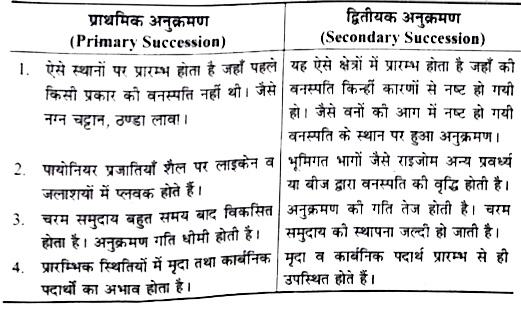 प्राथमिक अनुक्रमण
(Primary Succession)
द्वितीयक अनुक्रमण
(Secondary Succession)
1. ऐसे स्थानों पर प्रारम्भ होता है जहाँ पहले
किसी प्रकार की वनस्पति नहीं थी। जैसे
नग्न चट्टान, ठण्डा लावा।
यह ऐसे क्षेत्रों में प्रारम्भ होता है जहाँ की
वनस्पति किन्हीं कारणों से नष्ट हो गयी
हो। जैसे वनों की आग में नष्ट हो गयी
वनस्पति के स्थान पर हुआ अनुक्रमण।
2. पायोनियर प्रजातियाँ शैल पर लाइकेन व
जलाशयों में प्लवक होते हैं।
भूमिगत भागों जैसे राइजोम अन्य प्रवर्ध्य
या बीज द्वारा वनस्पति की वृद्धि होती है।
3. चरम समुदाय बहुत समय बाद विकसित
होता है। अनुक्रमण गति धीमी होती है।
अनुक्रमण की गति तेज होती है। चरम
समुदाय की स्थापना जल्दी हो जाती है।
4. प्रारम्भिक स्थितियों में मृदा तथा कार्बनिक
पदार्थों का अभाव होता है।
मृदा व कार्बनिक पदार्थ प्रारम्भ से ही
उपस्थित होते हैं।